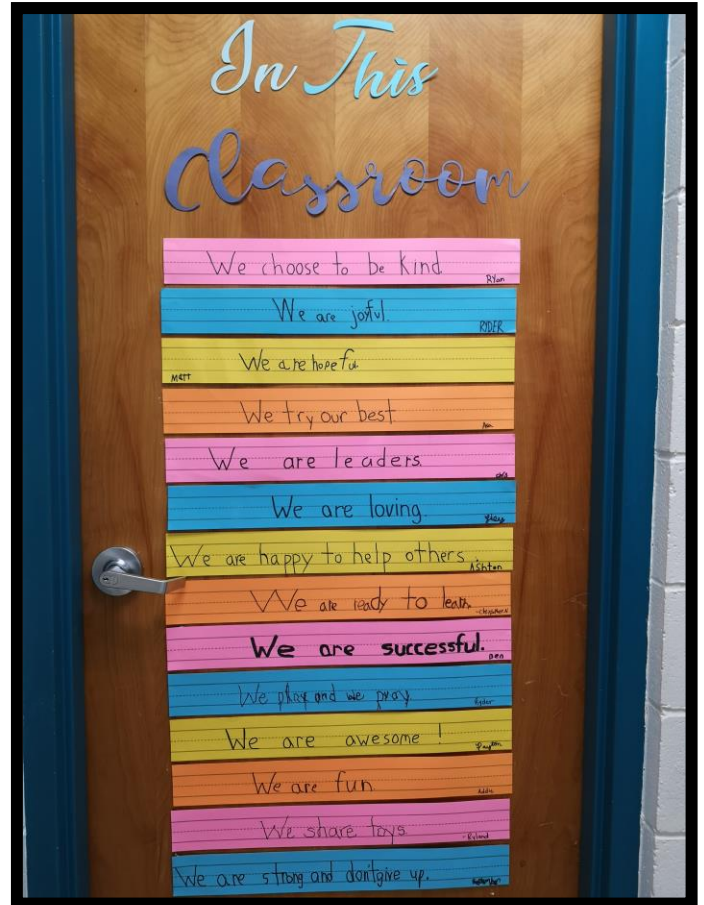 In This
Classroom
We choose to be kind
Ryan
We are joyful.
RIDER
We are hopeful
Matt
We try our best
We are leaders.
We are loving.
We are happy to help others.
Ashton
We are ready to learn.
We are successful.
Ben
We play and we pray
Ryder
We are awesome!
We are fun
Addie
We share toys.
-Roland
We are strong and don't give up.